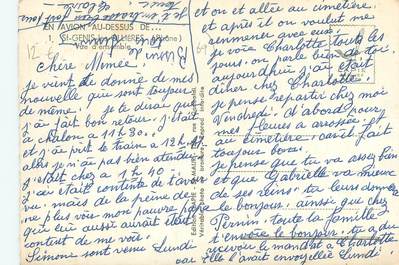 EN AVION AU-DESSUS DE...
Chère Mimée.
je vient te donné de mes
nouvelle que sont toujour
de même. je te dirai que
j'ai fait bon retour. j'était
à chalon à 11h30.
et j'ai prit le train à 12h
alors je n'ai pas bien attendu
j'était chez à 1h40.
j'ai était contente de t'avoir
vu. mais de la peine de
ne plus voir mon pauvre
que lui aussi aurait était
content de me voir.
Simone sont venu Lundi
et on et allée au cimetière.
et après il on voulut me
remmener avec eux.
je vois Charlotte tous les
jours. on parle bien de toi
aujourd'hui j'ai était
diner chez Charlotte
je pense repartir chez moi
Vendredi. d'abord pour
mes fleurs a arrosée. et
au cimetière car il fait
toujour beau.
je pense que tu va assez bien
et que Gabrielle va mieux
de ses reins. tu leurs donnera
le bonjour. ainsi que chez
Pernin. toute la famille
t'envoie le bonjour. tu a du
recevoir le mandat à Charlotte
car Elle l'avait envoyée Lundi